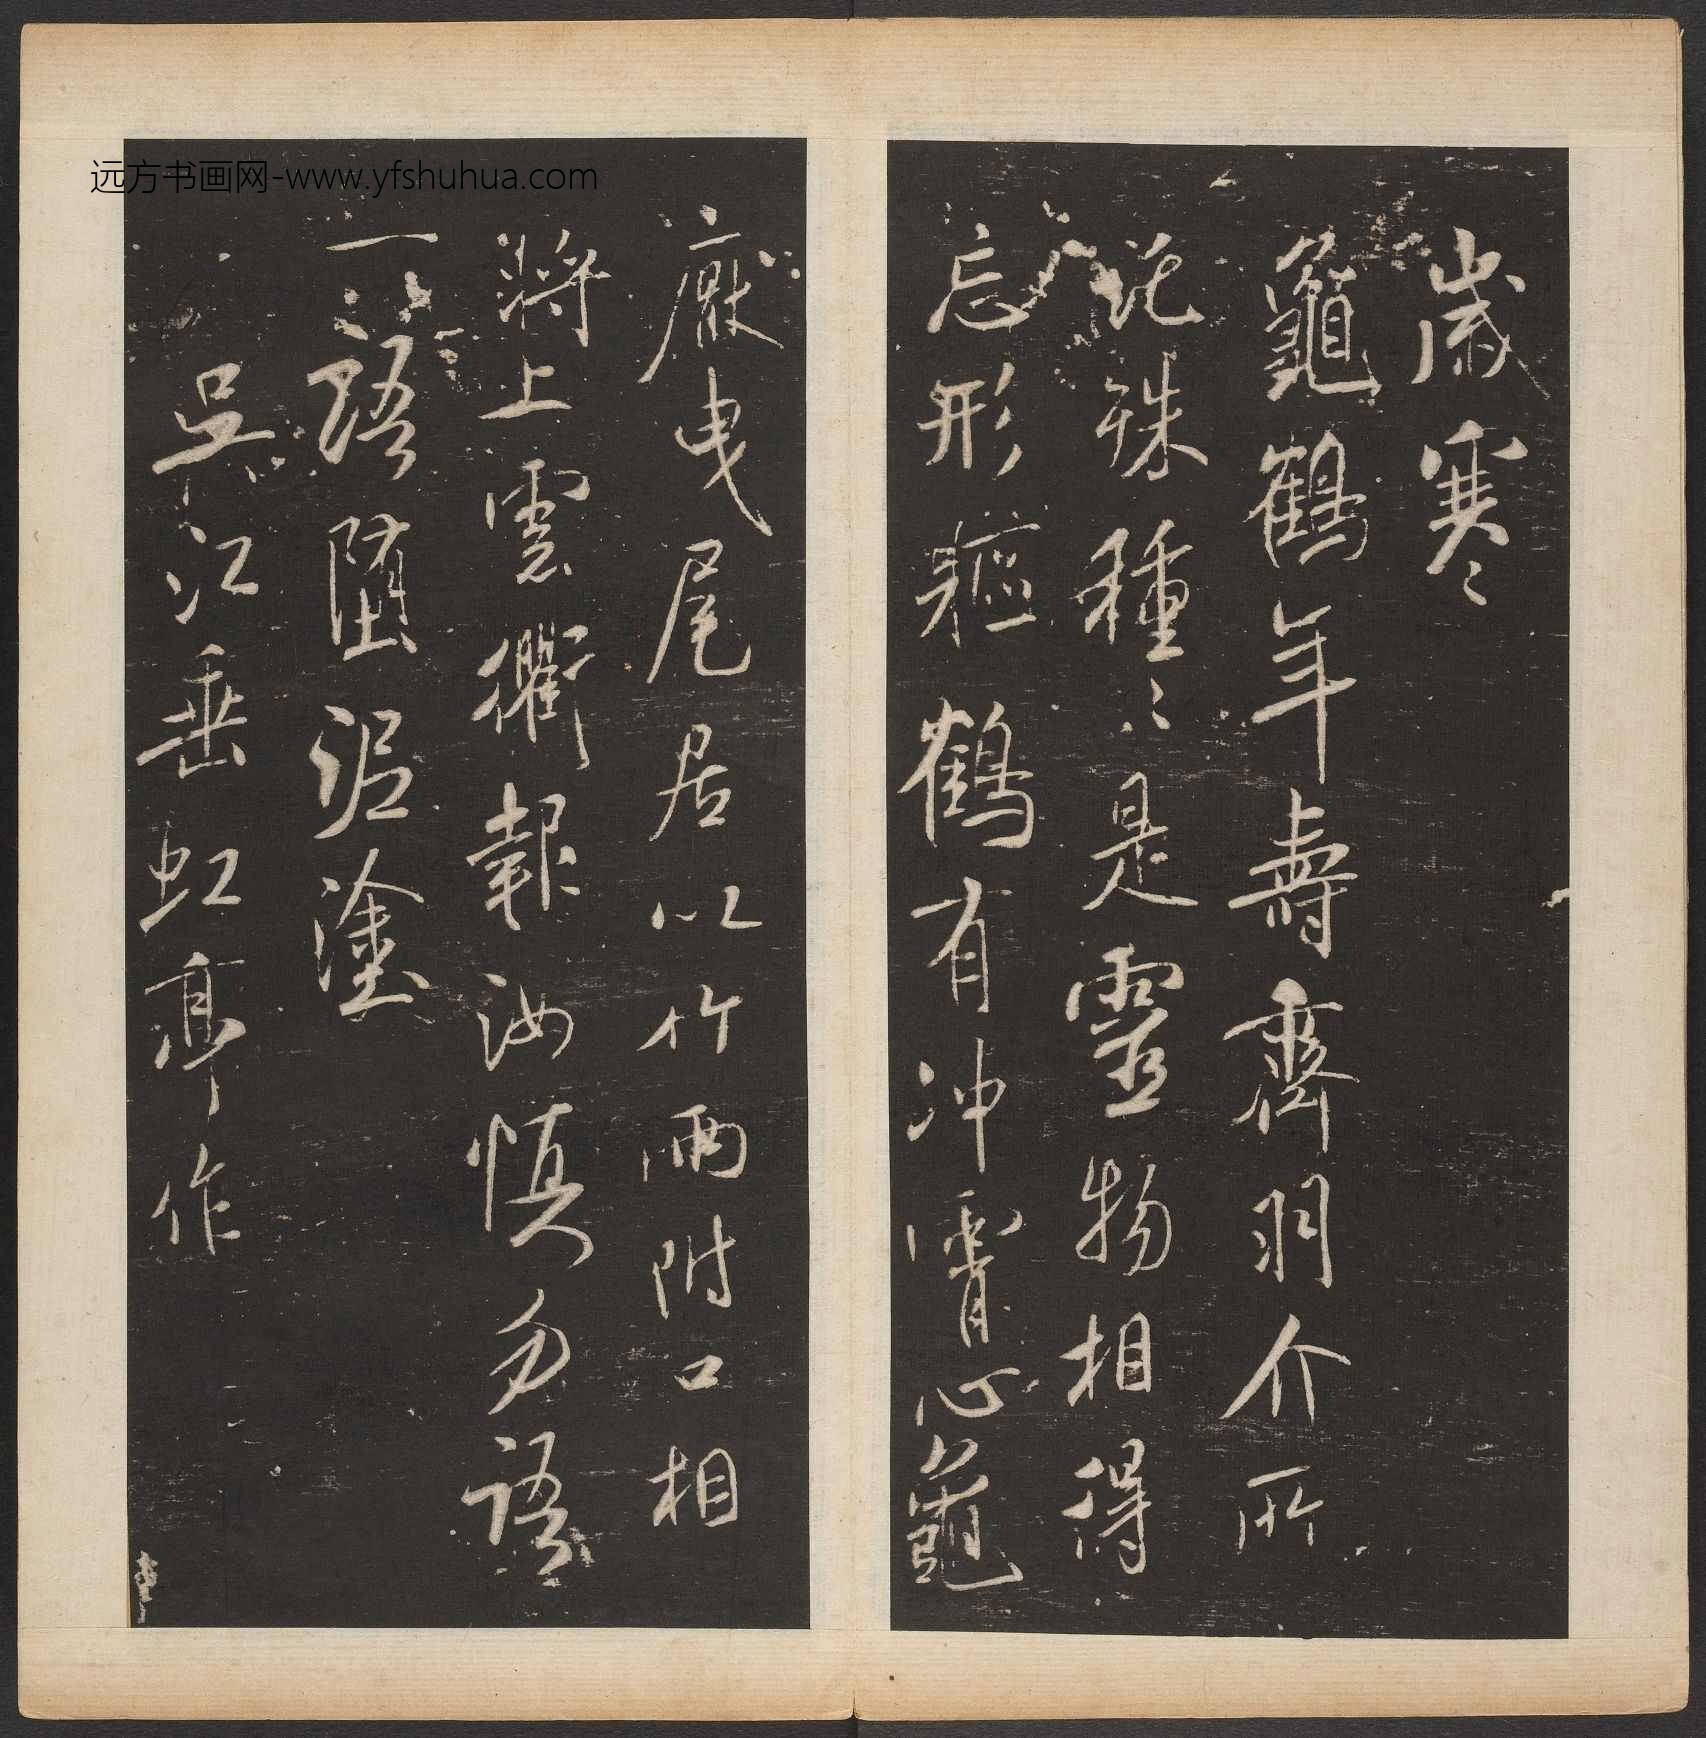 歲寒〻
龜鶴年壽齊羽介所
託殊種〻是靈物相得
忘形軀鶴有冲霄心龜
厭曳尾居以竹兩附口相
將上雲衢報汝慎勿語
一語墮泥塗
吳江垂虹亭作
远方书画网-www.yfshuhua.com